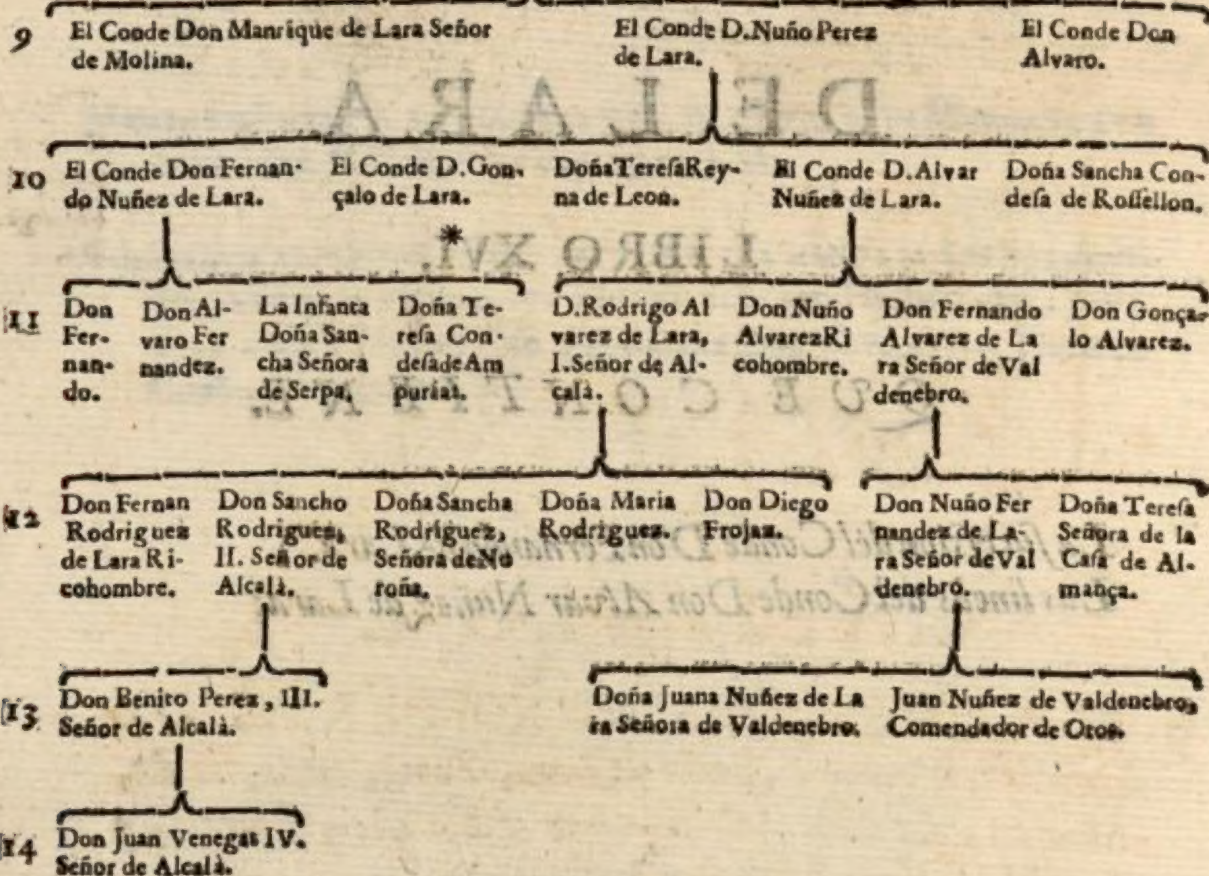 9
El Conde Don Manrique de Lara Señor
de Molina.
El Conde D.Nuño Perez
de Lara.
El Conde Don
Alvaro.
10
El Conde Don Fernan-
do Nuñez de Lara.
El Conde D.Gon-
çalo de Lara.
*
Doña Teresa Rey-
na de Leon.
El Conde D.Alvar
Nuñez de Lara.
Doña Sancha Con-
desa de Rossellon.
11
Don
Fer-
nan-
do.
Don Al-
varo Fer
nandez.
La Infanta
Doña San-
cha Señora
de Serpa.
Doña Te-
resa Con-
desa de Am
purias.
D.Rodrigo Al
varez de Lara,
I.Señor de Al-
calà.
Don Nuño
Alvarez Ri
cohombre.
Don Fernando
Alvarez de La
ra Señor de Val
denebro.
Don Gonça-
lo Alvarez.
12
Don Fernan
Rodriguez
de Lara Ri-
cohombre.
Don Sancho
Rodriguez,
II. Señor de
Alcalà.
Doña Sancha
Rodriguez,
Señora de No
roña.
Doña Maria
Rodriguez.
Don Diego
Frojaz.
Don Nuño Fer
nandez de La-
ra Señor de Val
denebro.
Doña Teresa
Señora de la
Casa de Al-
mança.
13
Don Benito Perez, III.
Señor de Alcalà.
Doña Juana Nuñez de La
ra Señora de Valdenebro.
Juan Nuñez de Valdenebro,
Comendador de Otos.
14
Don Juan Venegas IV.
Señor de Alcalà.